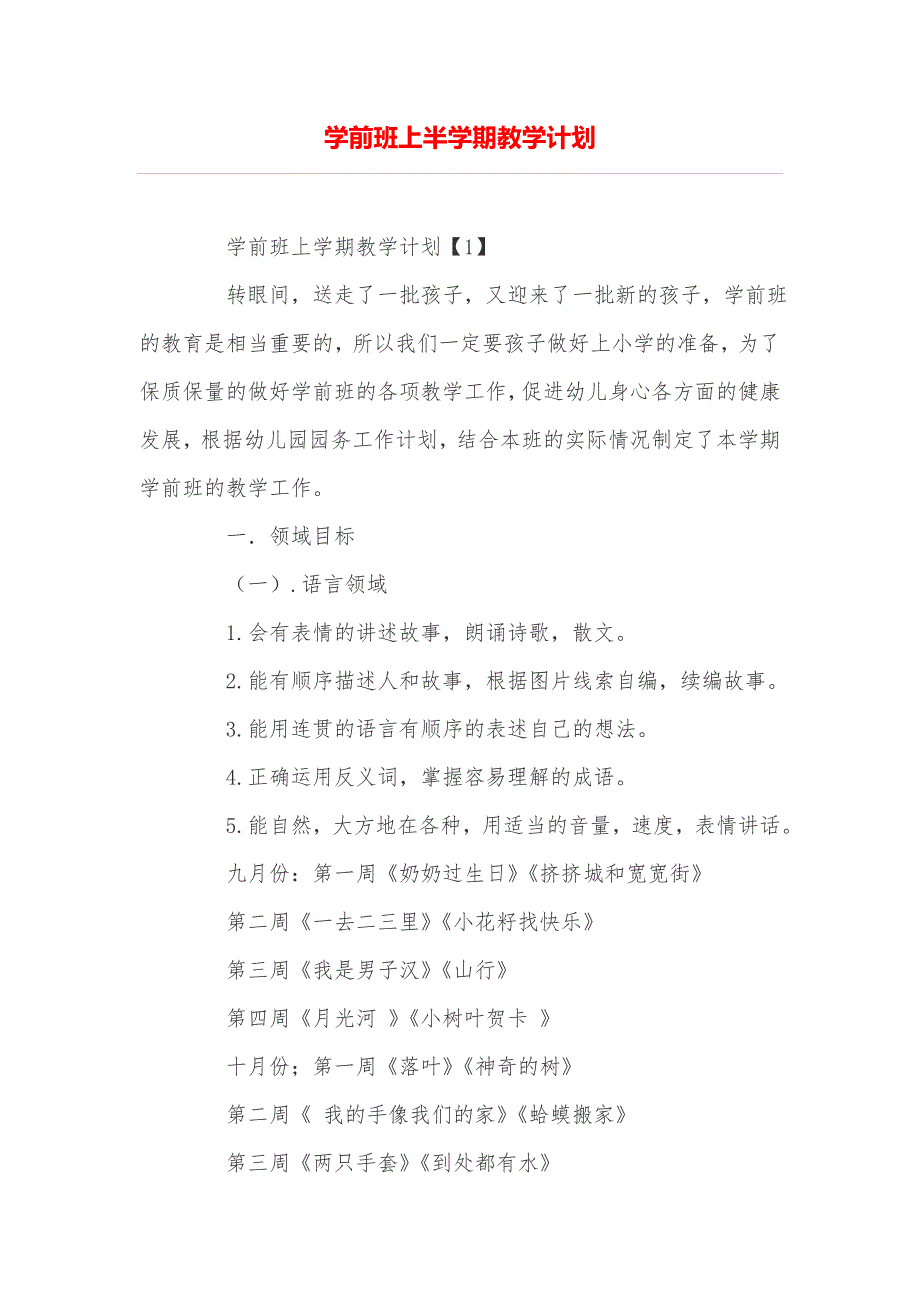 学前班上半学期教学计划
学前班上学期教学计划【1】
转眼间，送走了一批孩子，又迎来了一批新的孩子，学前班
的教育是相当重要的，所以我们一定要孩子做好上小学的准备，为了
保质保量的做好学前班的各项教学工作，促进幼儿身心各方面的健康
发展，根据幼儿园园务工作计划，结合本班的实际情况制定了本学期
学前班的教学工作。
一．领域目标
（一）.语言领域
1.会有表情的讲述故事，朗诵诗歌，散文。
2.能有顺序描述人和故事，根据图片线索自编，续编故事。
3.能用连贯的语言有顺序的表述自己的想法。
4.正确运用反义词，掌握容易理解的成语。
5.能自然，大方地在各种，用适当的音量，速度，表情讲话。
九月份：第一周《奶奶过生日》《挤挤城和宽宽街》
第二周《一去二三里》《小花籽找快乐》
第三周《我是男子汉》《山行》
第四周《月光河 》《小树叶贺卡 》
十月份；第一周《落叶》《神奇的树》
第二周《 我的手像我们的家》《蛤蟆搬家》
第三周《两只手套》《到处都有水》